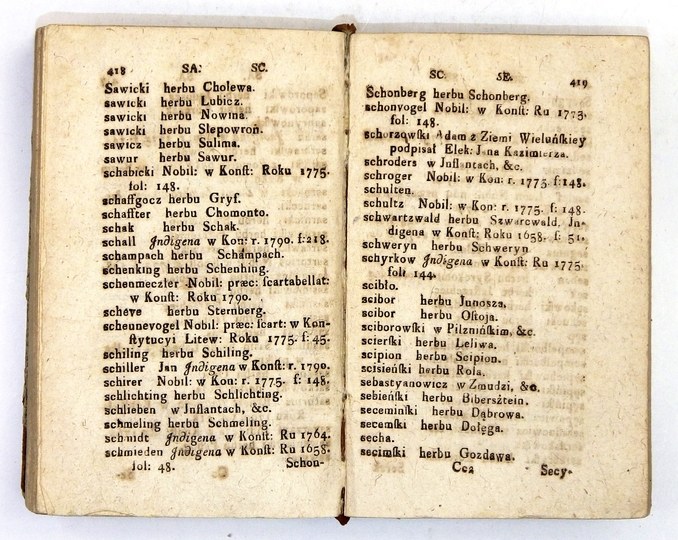 418 SA: SC.
Sawicki herbu Cholewa.
sawicki herbu Lubicz.
sawicki herbu Nowina.
sawicki herbu Slepowroń.
sawicz herbu Sulima.
sawur herbu Sawur.
schabicki Nobil: w Konſt: Roku 1775.
fol: 148.
schaffgocz herbu Gryf.
schaffter herbu Chomonto.
schak herbu Schak.
schall Jndigena w Kon: r. 1790. f:218.
schampach herbu Schampach.
schenking herbu Schenhing.
schenmeczler Nobil: præc: ſcartabellat:
w Konſt: Roku 1790.
scheve herbu Sternberg.
scheunevogel Nobil: præc: ſcart: w Kon-
ſtytucyi Litew: Roku 1775. f: 45.
schiling herbu Schiling.
schiller Jan Jndigena w Konſt: r. 1790.
schirer Nobil: w Kon: r. 1775. f: 148.
schlichting herbu Schlichting.
schlieben w Jnflantach, &c.
schmeling herbu Schmeling.
schmidt Jndigena w Konſt: Ru 1764.
schmieden Jndigena w Konſt: Ru 1658.
fol: 48. Schon-
SC. SE. 419
Schonberg herbu Schonberg.
schonvogel Nobil: w Konſt: Ru 1773.
fol: 148.
schorzowſki Adam z Ziemi Wieluńſkiey
podpisał Elek: Jana Kazimierza.
schroders w Jnflantach, &c.
schroger Nobil: w Kon: r. 1775. f:148.
schulten.
schultz Nobil: w Kon: r. 1775. f: 148.
schwartzwald herbu Szwarcwald. Jn-
digena w Konſt: Roku 1658. f: 51.
schweryn herbu Schweryn
schyrkow Jndigena w Konſt: Ru 1775.
fol: 144.
scibło.
scibor herbu Junosza.
scibor herbu Oſtoja.
sciborowski w Pilznińſkim, &c.
scierſki herbu Leliwa.
scipion herbu Scipion.
scisieńſki herbu Rola.
sebastyanowicz w Zmudzi, &c.
sebieńſki herbu Bibersztein.
seceminſki herbu Dąbrowa.
secemſki herbu Dołęga.
secha.
secimſki herbu Gozdawa.
Cca Secy-